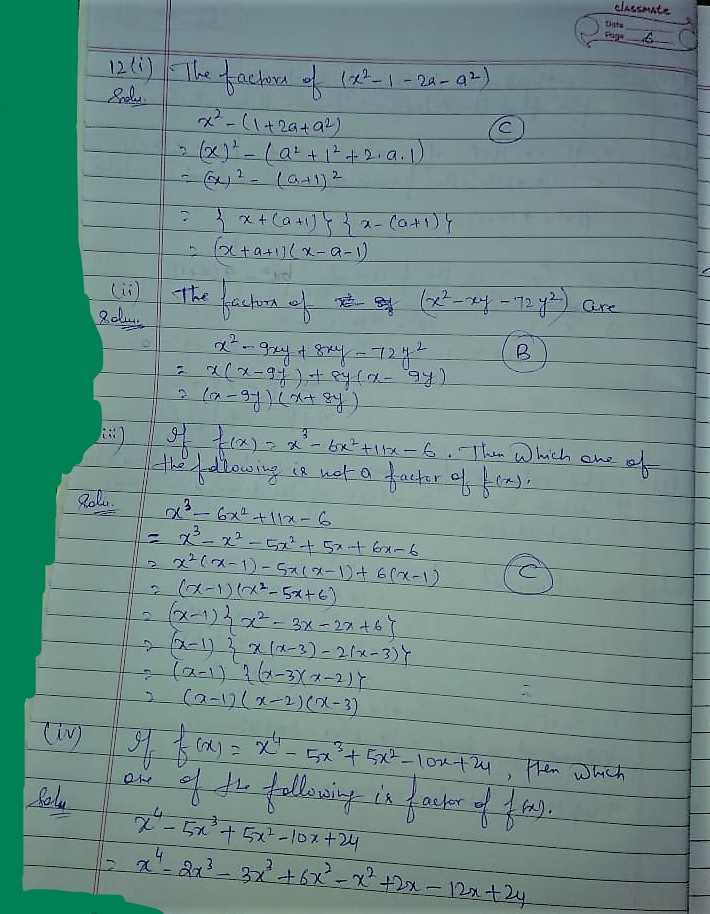 classmate
Date
Page 6
12(i) The factors of (x²-1-2a-a²)
Solu.
x² - (1+2a+a²) (C)
= (x)² - (a²+1²+2.a.1)
= (x)² - (a+1)²
= { x+(a+1)} { x-(a+1)}
= (x+a+1)(x-a-1)
(ii) The factors of (x²-xy-72y²) are
Solu.
x²-9xy+8xy-72y² (B)
= x(x-9y)+8y(x-9y)
= (x-9y)(x+8y)
iii) If f(x) = x³-6x²+11x-6. Then which one of
the following is not a factor of f(x).
Solu.
x³-6x²+11x-6
= x³-x²-5x²+5x+6x-6
= x²(x-1)-5x(x-1)+6(x-1) (C)
= (x-1)(x²-5x+6)
= (x-1){x²-3x-2x+6}
= (x-1) { x(x-3)-2(x-3)}
= (x-1) {(x-3)(x-2)}
= (x-1)(x-2)(x-3)
(iv) If f(x) = x⁴-5x³+5x²-10x+24, then which
one of the following is factor of f(x).
Solu
x⁴-5x³+5x²-10x+24
= x⁴-2x³-3x³+6x²-x²+2x-12x+24